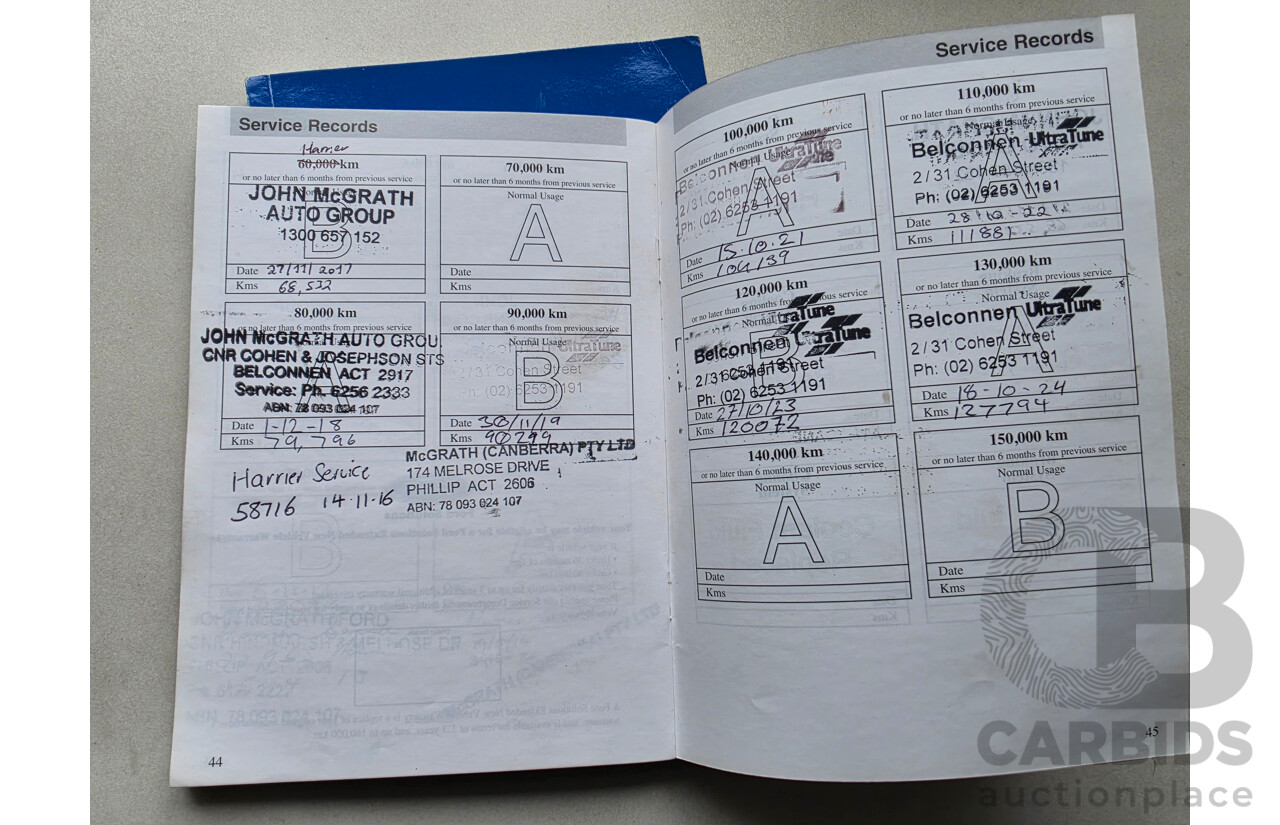 Service Records
Harrier
60,000 km
or no later than 6 months from previous service
Normal Usage
B
JOHN McGRATH
AUTO GROUP
1300 657 152
Date 27/11/2017
Kms 68,532
70,000 km
or no later than 6 months from previous service
Normal Usage
A
Date
Kms
80,000 km
or no later than 6 months from previous service
A
JOHN McGRATH AUTO GROU
CNR COHEN & JOSEPHSON STS
BELCONNEN ACT 2917
Service: Ph. 6256 2333
ABN: 78 093 024 107
Date 1-12-18
Kms 79,796
90,000 km
or no later than 6 months from previous service
Normal Usage
B
UltraTune
Cohen Street
(02) 6253 1191
Date 30/11/19
Kms 90299
Harrier Service
58716 14-11-16
McGRATH (CANBERRA) PTY LTD
174 MELROSE DRIVE
PHILLIP ACT 2606
ABN: 78 093 024 107
44
Service Records
100,000 km
or no later than 6 months from previous service
Normal Usage
A
Belconnen UltraTune
2/31 Cohen Street
Ph: (02) 6253 1191
Date 15.10.21
Kms 104139
110,000 km
or no later than 6 months from previous service
Normal Usage
A
Belconnen UltraTune
2/31 Cohen Street
Ph: (02) 6253 1191
Date 28-10-22
Kms 111881
120,000 km
or no later than 6 months from previous service
Normal
B
UltraTune
Belconnen UltraTune
2/31 Cohen Street
Ph: (02) 6253 1191
Date 27/10/23
Kms 120072
130,000 km
or no later than 6 months from previous service
Normal Usage
A
Belconnen UltraTune
2/31 Cohen Street
Ph: (02) 6253 1191
Date 18-10-24
Kms 127794
140,000 km
or no later than 6 months from previous service
Normal Usage
A
Date
Kms
150,000 km
or no later than 6 months from previous service
Normal Usage
B
Date
Kms
45
CARBIDS
auctionplace